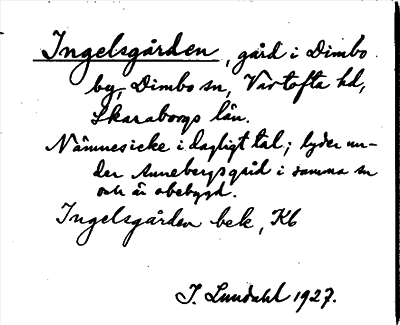 Ingelsgården, gård i Dimbo
by, Dimbo sn, Vartofta hd,
Skaraborgs län.
Nämnes icke i dagligt tal; lyder un-
der Annebergsgård i samma sn
och är obebygd.
Ingelsgården bek, Kb
J. Lundahl 1927.